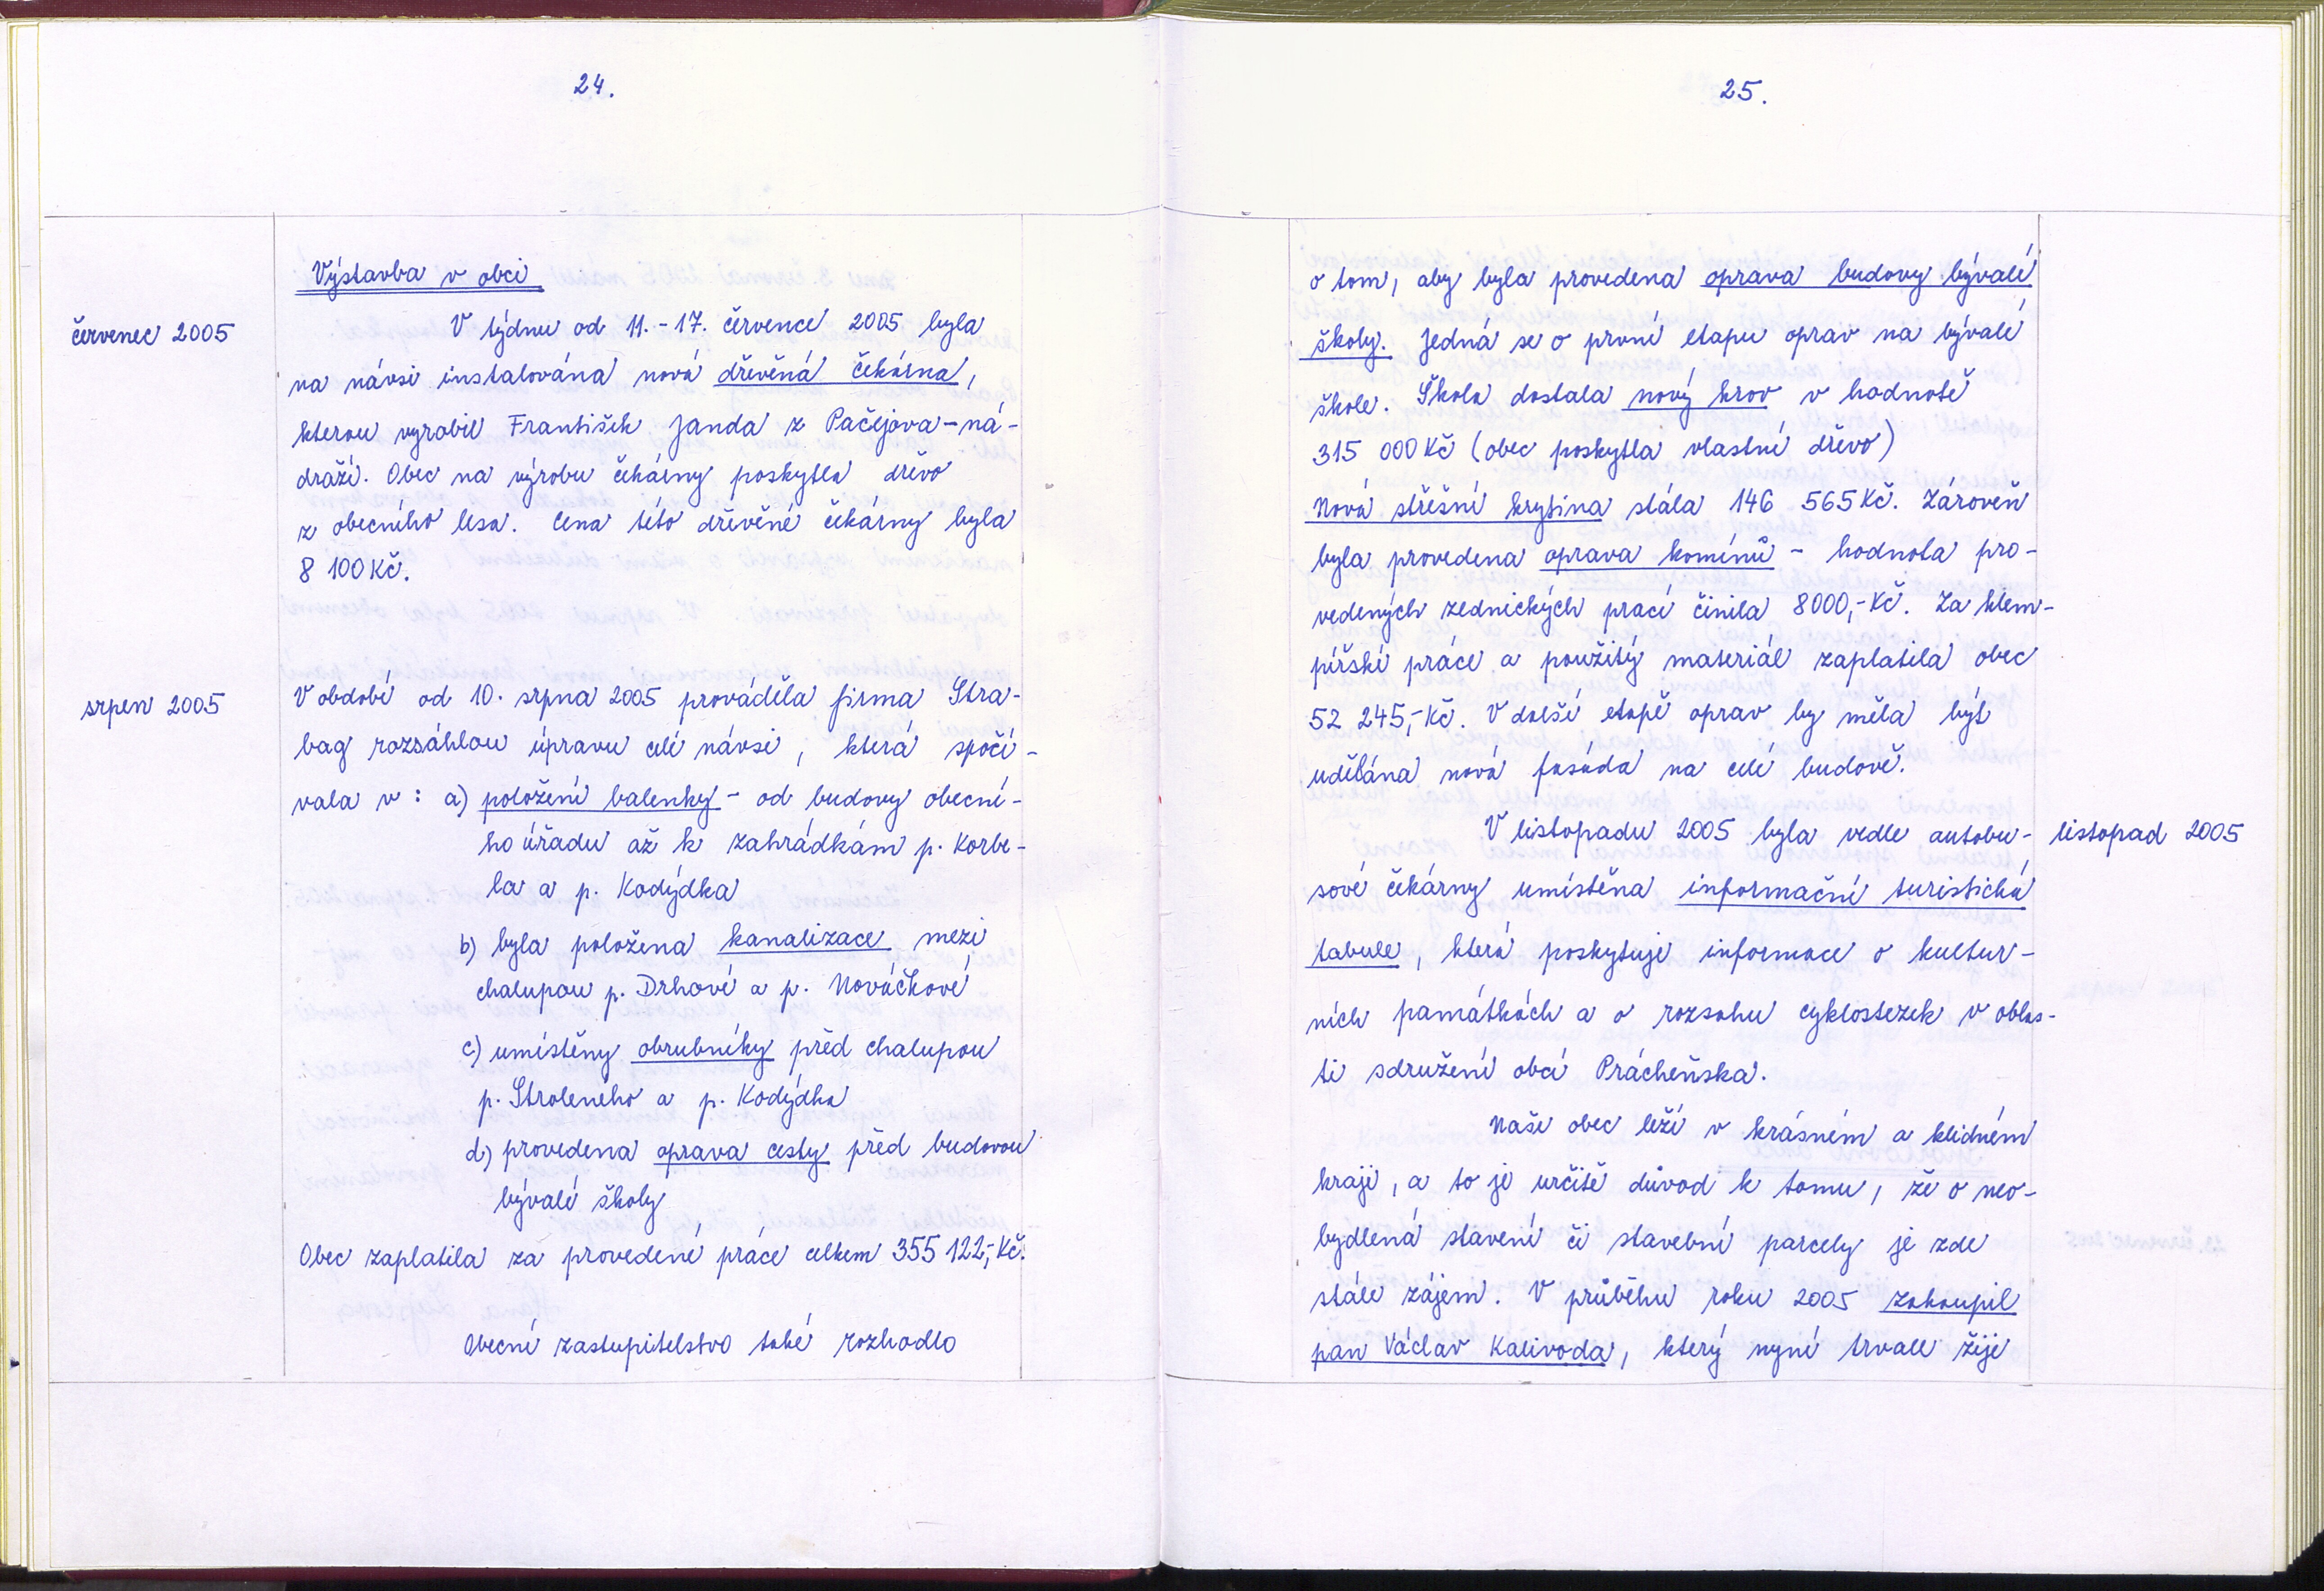 24.
Výstavba v obci
červenec 2005
V týdnu od 11. - 17. července 2005 byla
na návsi instalována nová dřevěná čekárna,
kterou vyrobil František Janda z Pačejova - ná-
draží. Obec na výrobu čekárny poskytla dřevo
z obecního lesa. Cena této dřevěné čekárny byla
8 100 Kč.
srpen 2005
V období od 10. srpna 2005 prováděla firma Stra-
bag rozsáhlou úpravu celé návsi, která spočí-
vala v: a) položení balenky - od budovy obecní-
ho úřadu až k zahrádkám p. Korbe-
la a p. Kodýdka
b) byla položena kanalizace mezi
chalupou p. Drhové a p. Nováčkové
c) umístěny obrubníky před chalupou
p. Stroleného a p. Kodýdka
d) provedena oprava cesty před budovou
bývalé školy
Obec zaplatila za provedené práce celkem 355 122,- Kč.
Obecní zastupitelstvo také rozhodlo
25.
o tom, aby byla provedena oprava budovy bývalé
školy. Jedná se o první etapu oprav na bývalé
škole. Škola dostala nový krov v hodnotě
315 000 Kč (obec poskytla vlastní dřevo)
Nová střešní krytina stála 146 565 Kč. Zároveň
byla provedena oprava komínů - hodnota pro-
vedených zednických prací činila 8000,- Kč. Za klem-
pířské práce a použitý materiál zaplatila obec
52 245,- Kč. V další etapě oprav by měla být
udělána nová fasáda na celé budově.
V listopadu 2005 byla vedle autobu-
listopad 2005
sové čekárny umístěna informační turistická
tabule, která poskytuje informace o kultur-
ních památkách a o rozsahu cyklostezek v oblas-
ti sdružení obcí Prácheňska.
Naše obec leží v krásném a klidném
kraji, a to je určitě důvod k tomu, že o neo-
bydlená stavení či stavební parcely je zde
stále zájem. V průběhu roku 2005 zakoupil
pan Václav Kalivoda, který nyní trvale žije